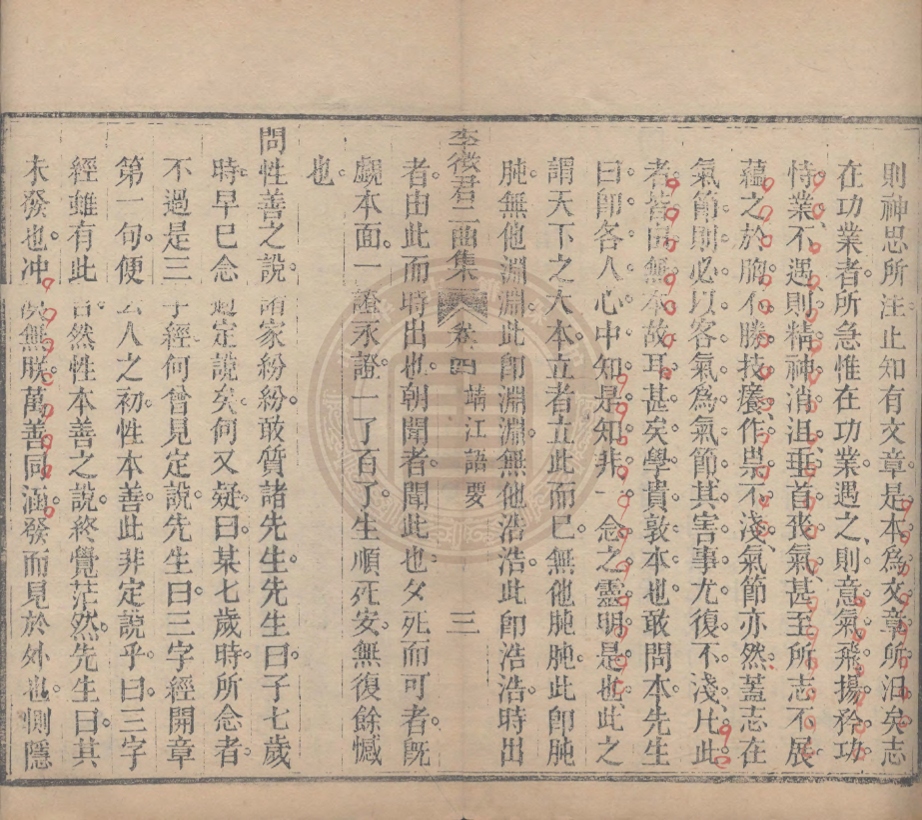 則神思所注止知有文章是本爲文章所汩矣志
在功業者所急惟在功業遇之則意氣飛揚矜功
恃業不遇則精神消沮垂首喪氣甚至所志不展
蘊之於胸不勝技癢作祟不淺氣節亦然蓋志在
氣節則必以客氣爲氣節其害事尤復不淺凡此
者皆因無本故耳甚矣學貴敦本也敢問本先生
曰卽各人心中知是知非一念之靈明是也此之
謂天下之大本立者立此而已無他肫肫此卽肫
肫無他淵淵此卽淵淵無他浩浩此卽浩浩時出
李徵君二曲集 卷四 靖江語要 三
者由此而時出也朝聞者聞此也夕死而可者旣
覷本面一證永證一了百了生順死安無復餘憾
也
問性善之說諸家紛紛敢質諸先生先生曰子七歲
時早已念過定說矣何又疑曰某七歲時所念者
不過是三字經何曾見定說先生曰三字經開章
第一句便云人之初性本善此非定說乎曰三字
經雖有此言然性本善之說終覺茫然先生曰其
未發也冲漠無朕萬善同涵發而見於外也惻隱